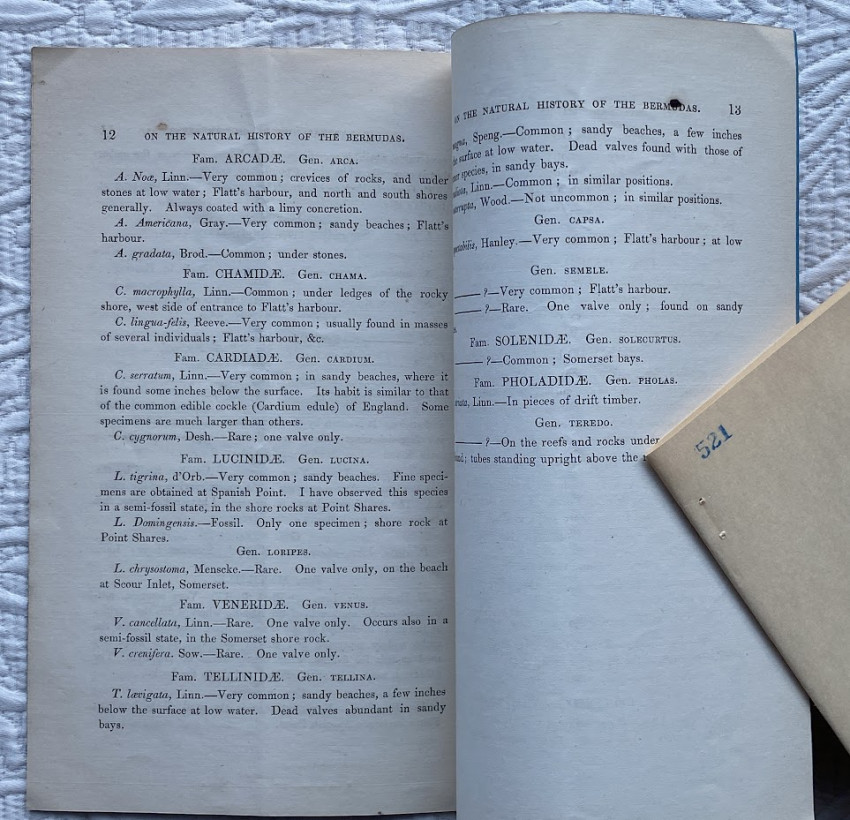 12 ON THE NATURAL HISTORY OF THE BERMUDAS.
Fam. ARCADÆ. Gen. ARCA.
A. Noæ, Linn.—Very common; crevices of rocks, and under
stones at low water; Flatt's harbour, and north and south shores
generally. Always coated with a limy concretion.
A. Americana, Gray.—Very common; sandy beaches; Flatt's
harbour.
A. gradata, Brod.—Common; under stones.
Fam. CHAMIDÆ. Gen. CHAMA.
C. macrophylla, Linn.—Common; under ledges of the rocky
shore, west side of entrance to Flatt's harbour.
C. lingua-felis, Reeve.—Very common; usually found in masses
of several individuals; Flatt's harbour, &c.
Fam. CARDIADÆ. Gen. CARDIUM.
C. serratum, Linn.—Very common; in sandy beaches, where it
is found some inches below the surface. Its habit is similar to that
of the common edible cockle (Cardium edule) of England. Some
specimens are much larger than others.
C. cygnorum, Desh.—Rare; one valve only.
Fam. LUCINIDÆ. Gen. LUCINA.
L. tigrina, d'Orb.—Very common; sandy beaches. Fine speci-
mens are obtained at Spanish Point. I have observed this species
in a semi-fossil state, in the shore rocks at Point Shares.
L. Domingensis.—Fossil. Only one specimen; shore rock at
Point Shares.
Gen. LORIPES.
L. chrysostoma, Menscke.—Rare. One valve only, on the beach
at Scour Inlet, Somerset.
Fam. VENERIDÆ. Gen. VENUS.
V. cancellata, Linn.—Rare. One valve only. Occurs also in a
semi-fossil state, in the Somerset shore rock.
V. crenifera. Sow.—Rare. One valve only.
Fam. TELLINIDÆ. Gen. TELLINA.
T. lævigata, Linn.—Very common; sandy beaches, a few inches
below the surface at low water. Dead valves abundant in sandy
bays.
ON THE NATURAL HISTORY OF THE BERMUDAS. 13
Speng.—Common; sandy beaches, a few inches
surface at low water. Dead valves found with those of
species, in sandy bays.
Linn.—Common; in similar positions.
Wood.—Not uncommon; in similar positions.
Gen. CAPSA.
Hanley.—Very common; Flatt's harbour; at low
Gen. SEMELE.
—— ?—Very common; Flatt's harbour.
—— ?—Rare. One valve only; found on sandy
Fam. SOLENIDÆ. Gen. SOLECURTUS.
—— ?—Common; Somerset bays.
Fam. PHOLADIDÆ. Gen. PHOLAS.
Linn.—In pieces of drift timber.
Gen. TEREDO.
—— ?—On the reefs and rocks under
tubes standing upright above the
521